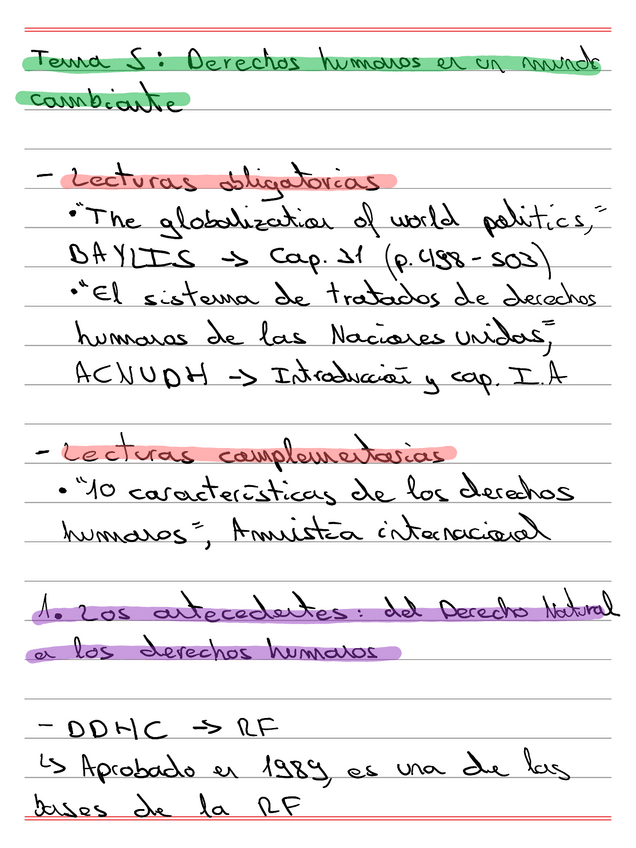 Tema 5: Derechos humanos en un mundo
cambiante
- Lecturas obligatorias
• "The globalization of world politics,"
BAYLIS → Cap. 31 (p. 498 - 503)
• "El sistema de tratados de derechos
humanos de las Naciones unidas",
ACNUDH → Introducción y cap. I.A
- Lecturas complementarias
• "10 características de los derechos
humanos", Amnistía internacional
1. Los antecedentes: del Derecho Natural
a los derechos humanos
- DDHC → RF
↳ Aprobado en 1989, es una de las
bases de la RF